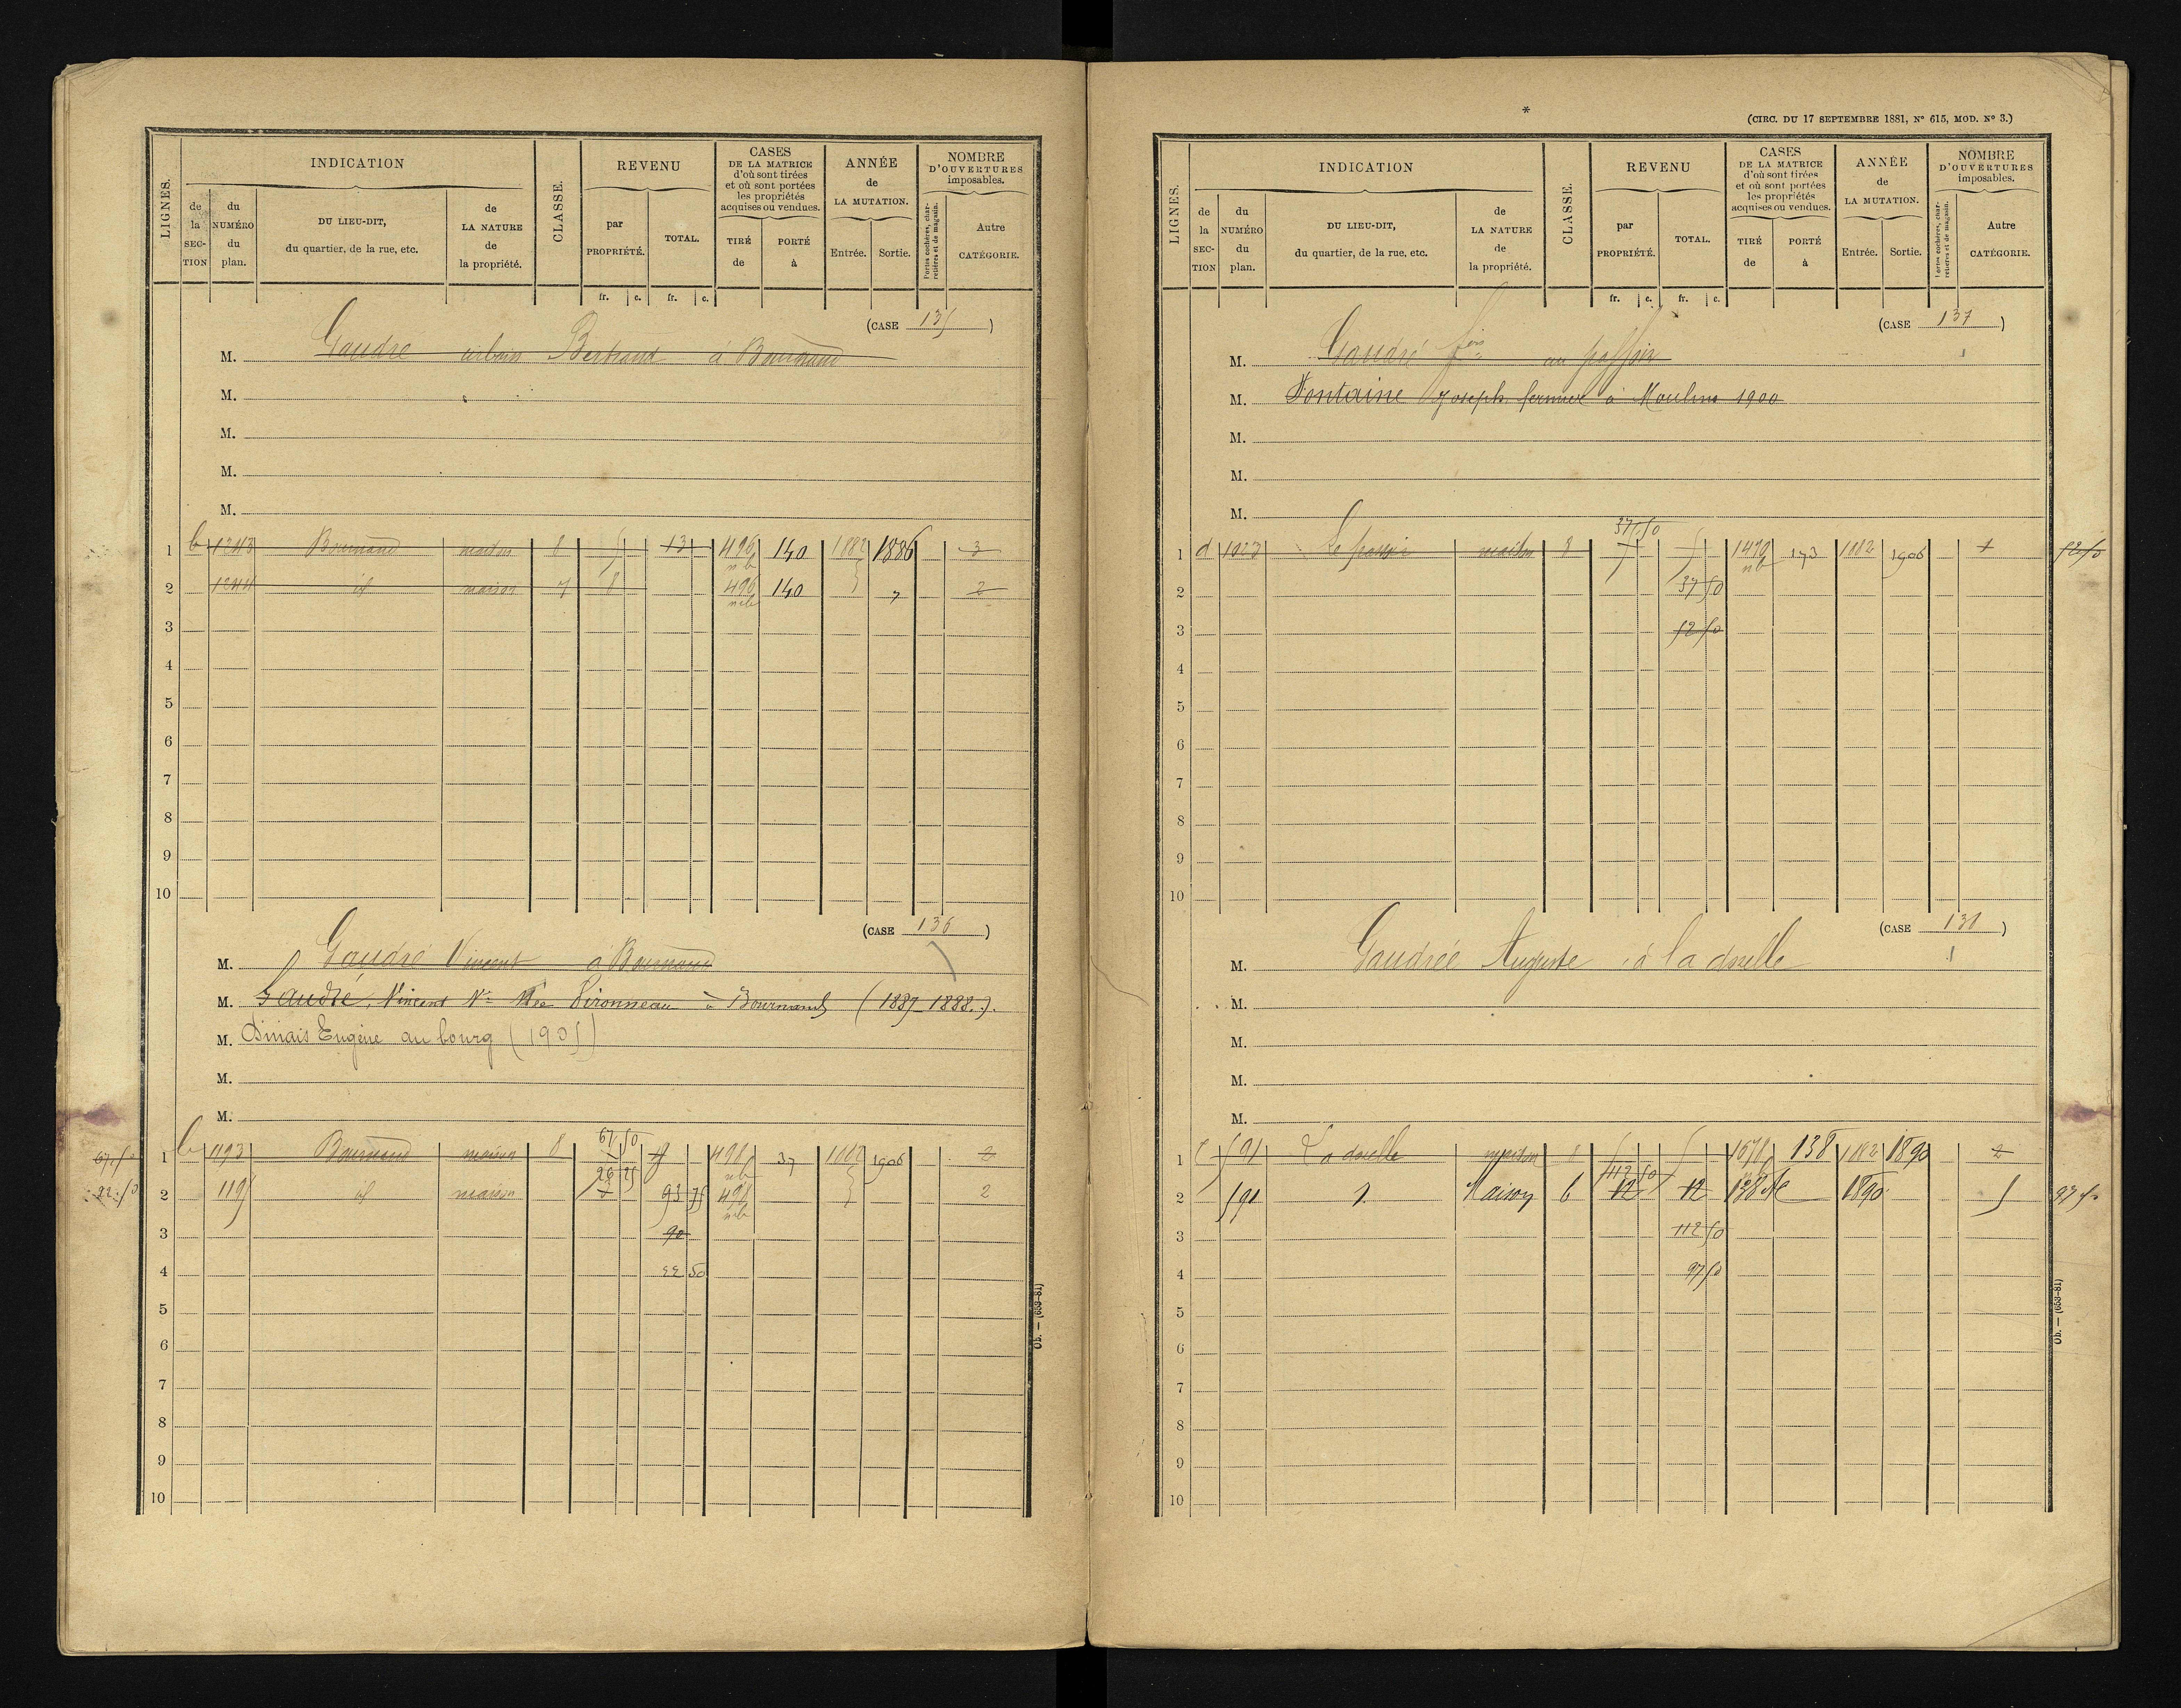 LIGNES.
INDICATION
de la SECTION
du NUMÉRO du plan.
DU LIEU-DIT, du quartier, de la rue, etc.
de LA NATURE de la propriété.
CLASSE.
REVENU
par PROPRIÉTÉ.
TOTAL.
CASES DE LA MATRICE d'où sont tirées et où sont portées les propriétés acquises ou vendues.
TIRÉ de
PORTÉ à
ANNÉE de LA MUTATION.
Entrée.
Sortie.
NOMBRE D'OUVERTURES imposables.
Portes cochères, charretières et de magasin.
Autre CATÉGORIE.
fr. c. fr. c.
(CASE 135)
M. Gaudré urbain Bertrand à Bournand
M.
M.
M.
M.
1 b 1243 Bournand maison 8 5 13 496 140 1882 1886 3
2 1244 id maison 7 8 496 140 " 2
3
4
5
6
7
8
9
10
(CASE 136)
M. Gaudré Vincent à Bournand
M. Gaudré, Vincent Vve Née Vironneau à Bournand (1887-1888.)
M. Dinais Eugène au bourg (1905)
M.
M.
67 50
67.50 1 b 1193 Bournand maison 8 498 37 1882 1906 2
26 25
22.50 2 1195 id maison 93 75 498 2
3 90
4 22 50
5
6
7
8
9
10
Ob. — (653-81)
*
(CIRC. DU 17 SEPTEMBRE 1881, N° 615, MOD. N° 3.)
LIGNES.
INDICATION
de la SECTION
du NUMÉRO du plan.
DU LIEU-DIT, du quartier, de la rue, etc.
de LA NATURE de la propriété.
CLASSE.
REVENU
par PROPRIÉTÉ.
TOTAL.
CASES DE LA MATRICE d'où sont tirées et où sont portées les propriétés acquises ou vendues.
TIRÉ de
PORTÉ à
ANNÉE de LA MUTATION.
Entrée.
Sortie.
NOMBRE D'OUVERTURES imposables.
Portes cochères, charretières et de magasin.
Autre CATÉGORIE.
fr. c. fr. c.
(CASE 137)
M. Gaudré fois au
M. Fontaine Joseph fermier à Moulins 1900
M.
M.
M.
37 50
1 d 1023 maison 8 5 5 1470 173 1882 1906 1 52 50
2 37 50
3 52 50
4
5
6
7
8
9
10
(CASE 138)
M. Gaudrée Auguste à la doelle
M.
M.
M.
M.
1 591 La doelle maison 8 5 5 1678 138 1882 1890 2
112 50
2 591 Maison 6 12 12 138 NC 1890 5 97 50
3 112 50
4 97 50
5
6
7
8
9
10
Ob. — (653-81)